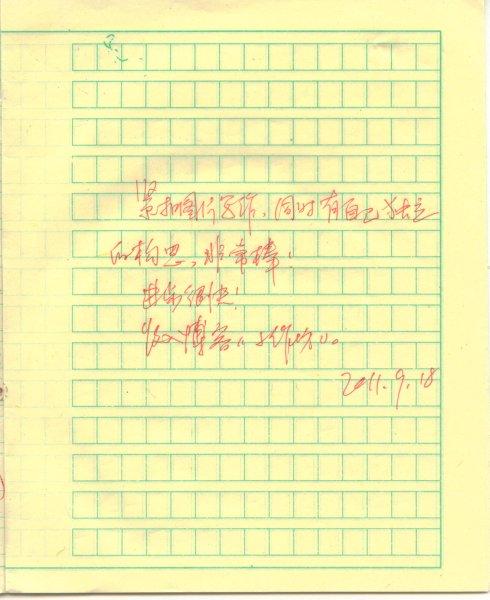 紧扣图片写作，同时有自己独立
的构思，非常棒！
进步很快！
收入博客《小作坊》。
2011.9.18